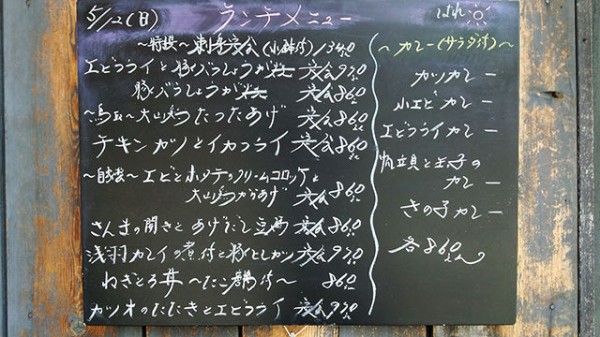 5/12(日) ランチメニュー はれ
〜特撰〜刺身定食(小鉢付)1340
エビフライと豚バラしょうが焼 定食930
豚バラしょうが焼 定食860
〜鳥取〜大山鶏たつたあげ 定食860
チキンカツとイカフライ 定食860
〜自家〜エビとホタテのクリームコロッケと
大山鶏からあげ 定食860
さんまの開きとあげだし豆腐 定食860
浅羽カレイの煮付と豚ヒレカツ 定食930
ねぎとろ丼 860
カツオのたたきとエビフライ 定食930
〜カレー(サラダ付)〜
カツカレー ー
小エビカレー ー
エビフライカレー ー
帆立貝と玉子の
カレー ー
きの子カレー ー
各860